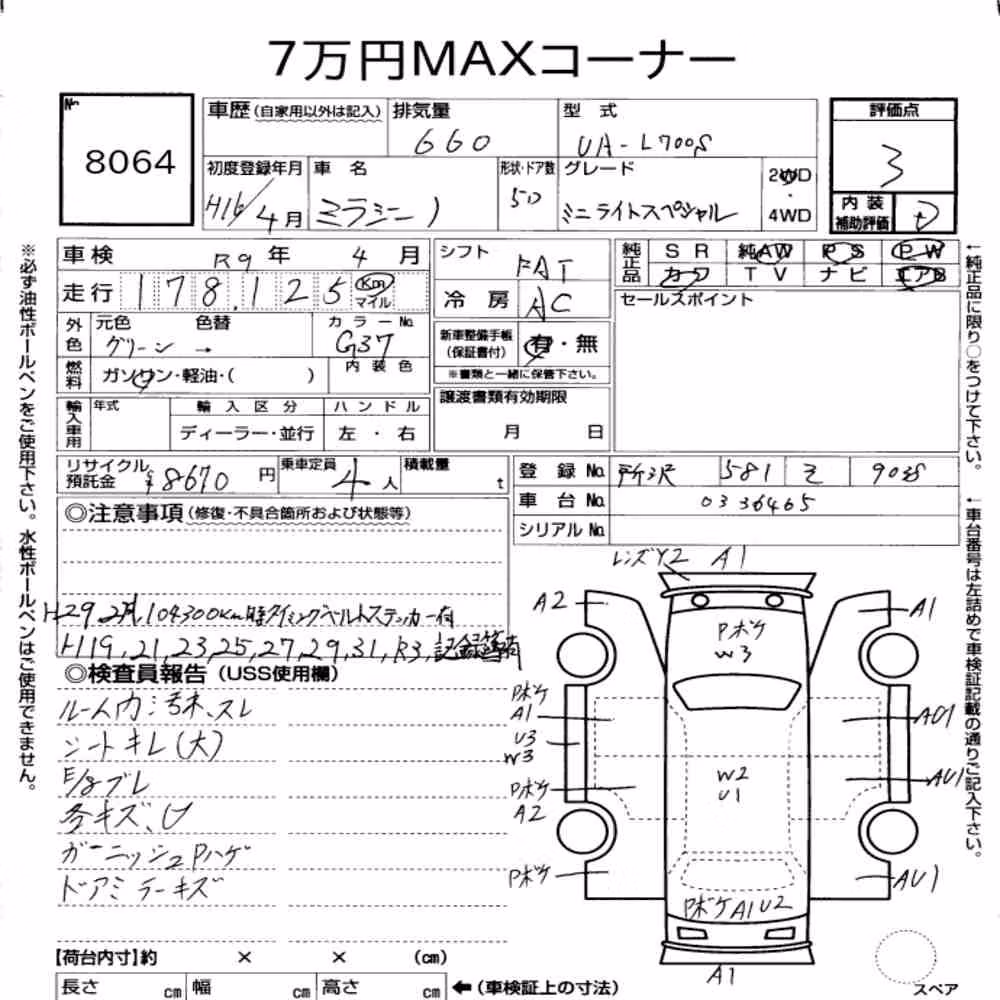 7万円MAXコーナー
No.
8064
車歴(自家用以外は記入)
排気量
660
型 式
UA-L700S
評価点
3
初度登録年月
H16/4月
車 名
ミラジーノ
形状・ドア数
5D
グレード
ミニライトスペシャル
2WD
・
4WD
内 装
補助評価
D
車 検
R9 年 4 月
シフト
FAT
純正品
S R 純AW P S P W
カワ T V ナビ エアB
走 行
178,125
Km
マイル
冷 房
AC
セールスポイント
外色
元色 色替
グリーン →
カ ラ ー No.
G37
新車整備手帳
(保証書付)
有・無
※書類と一緒に保管下さい。
燃料
ガソリン・軽油・( )
内 装 色
譲渡書類有効期限
月 日
輸入車用
年式
輸 入 区 分
ディーラー・並行
ハ ン ド ル
左 ・ 右
リサイクル
預託金
¥8670 円
乗車定員
4人
積載量
t
登 録 No.
所沢 581 903
車 台 No.
0336465
シリアル No.
◎注意事項(修復・不具合箇所および状態等)
H29.2月104300km時タイミングベルトステッカー有
H19,21,23,25,27,29,31,R3,記録簿有
◎検査員報告(USS使用欄)
ルーム内汚れ、スレ
シートキレ(大)
E/gブレ
各キズ、U
ガーニッシュPハゲ
ドアミラーキズ
レンズY2 A1
A2
A1
Pボケ
W3
Pボケ
A1
U3
W3
AU1
W2
U1
Pボケ
A2
AU1
Pボケ
AU1
PボケA1U2
A1
スペア
【荷台内寸】約 × × (cm)
長さ cm 幅 cm 高さ cm
←(車検証上の寸法)
※必ず油性ボールペンをご使用下さい。水性ボールペンはご使用できません。
←純正品に限り○をつけて下さい。
←車台番号は左詰めで車検証記載の通りご記入下さい。